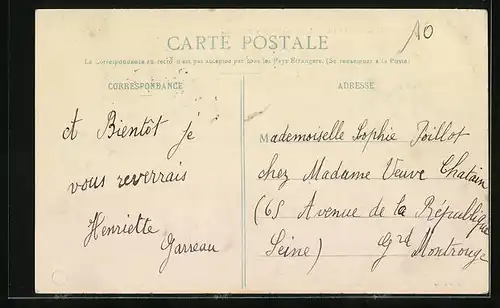 10
CARTE POSTALE
La Correspondance au recto n'est pas acceptée par tous les Pays Étrangers. (Se renseigner à la Poste)
CORRESPONDANCE
ADRESSE
et Bientôt je
vous reverrais
Henriette
Garreau
Mademoiselle Sophie Joillot
chez Madame Veuve Chatain
(65 Avenue de la République
Seine) Grd Montrouge